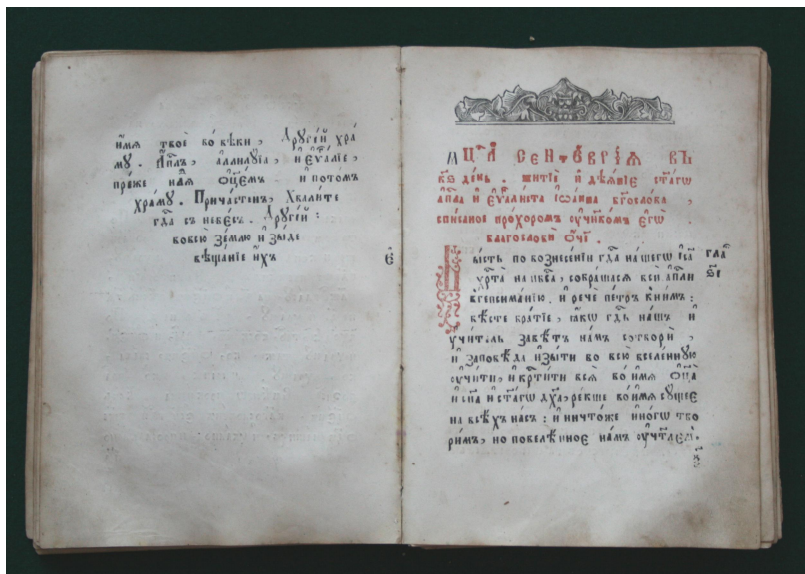 и҆́мѧ твоѐ во́вѣки, Дрꙋгі́й хра́
мꙋ. А҆пⷭ҇лъ, а҆ллилꙋ́їа, и҆ є҆ѵⷢ҇алїе,
пре́же ѻ҆ц҃е́мъ и҆ пото́мъ
хра́мꙋ. Прича́стенъ, Хвали́те
гдⷭ҇а съ небе́съ. Дрꙋгі́й:
во всю̀ зе́млю и҆зы́де
вѣща́ние и҆́хъ
є҃
Мцⷭ҇а сентѧ́врїѧ въ
к҃ѕ де́нь. житїѐ и҆ дѣѧ́нїе ст҃а́гѡ
а҆пⷭ҇ла и҆ є҆ѵⷢ҇али́ста і҆ѡа́нна бг҃осло́ва,
спи́саное про́хоромъ ᲂу҆чн҃ико́мъ є҆гѡ̀
благословѝ ѻ҆́ч҃е.
Бы́сть по вознесе́нїи гдⷭ҇а на́шегѡ і҆с҃а
хрⷭ҇та̀ на нб҃са̀, собра́шасѧ всѝ а҆пⷭ҇ли
в̾геѳсима́нїю. и҆ речѐ пе́тръ к̾ни́мъ:
вѣ́сте бра́тїе, ꙗ҆́кѡ гдⷭ҇ь на́шъ и҆
ᲂу҆чи́тель завѣ́тъ на́мъ сотворѝ,
и҆ заповѣ́да и҆зы́ти во всю̀ вселе́ннꙋю
ᲂу҆чи́ти, и҆ крⷭ҇ти́ти всѧ̀ во и҆́мѧ ѻ҆ц҃а̀
и҆ сн҃а и҆ ст҃а́гѡ дх҃а, ре́кше во и҆́мѧ сꙋ́щее
на всѣ́хъ на́съ: и҆ ничто́же и҆но́гѡ тво
ри́мъ, но повелѣ́нное на́мъ
гла҃